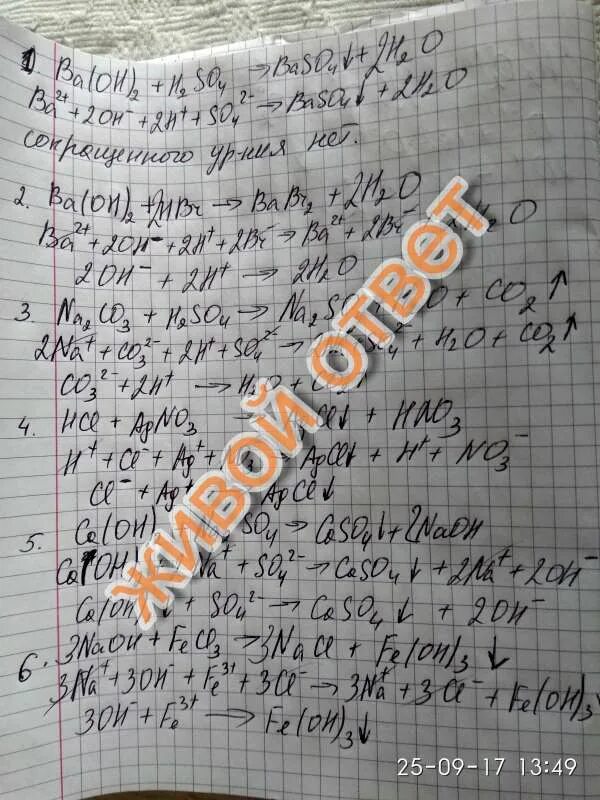 1) Ba(OH)2 + H2SO4 → BaSO4↓ + 2H2O
Ba²⁺ + 2OH⁻ + 2H⁺ + SO4²⁻ → BaSO4↓ + 2H2O
сокращенного ур-ния нет.
2. Ba(OH)2 + 2HBr → BaBr2 + 2H2O
Ba²⁺ + 2OH⁻ + 2H⁺ + 2Br⁻ → Ba²⁺ + 2Br⁻ H2O
2OH⁻ + 2H⁺ → 2H2O
3. Na2CO3 + H2SO4 → Na2SO O + CO2↑
2Na⁺ + CO3²⁻ + 2H⁺ + SO4²⁻ → SO4²⁻ + H2O + CO2↑
CO3²⁻ + 2H⁺ → H2O + C
4. HCl + AgNO3 AgCl↓ + HNO3
H⁺ + Cl⁻ + Ag⁺ + N AgCl↓ + H⁺ + NO3⁻
Cl⁻ + Ag⁺ AgCl↓
5. Ca(OH) Na SO4 → CaSO4↓ + 2NaOH
Ca(OH) Na⁺ + SO4²⁻ → CaSO4↓ + 2Na⁺ + 2OH⁻
Ca(OH) + SO4²⁻ → CaSO4↓ + 2OH⁻
6. 3NaOH + FeCl3 → 3NaCl + Fe(OH)3↓
3Na⁺ + 3OH⁻ + Fe³⁺ + 3Cl⁻ → 3Na⁺ + 3Cl⁻ + Fe(OH)3↓
3OH⁻ + Fe³⁺ → Fe(OH)3↓
ЖИВОЙ ОТВЕТ
25-09-17 13:49